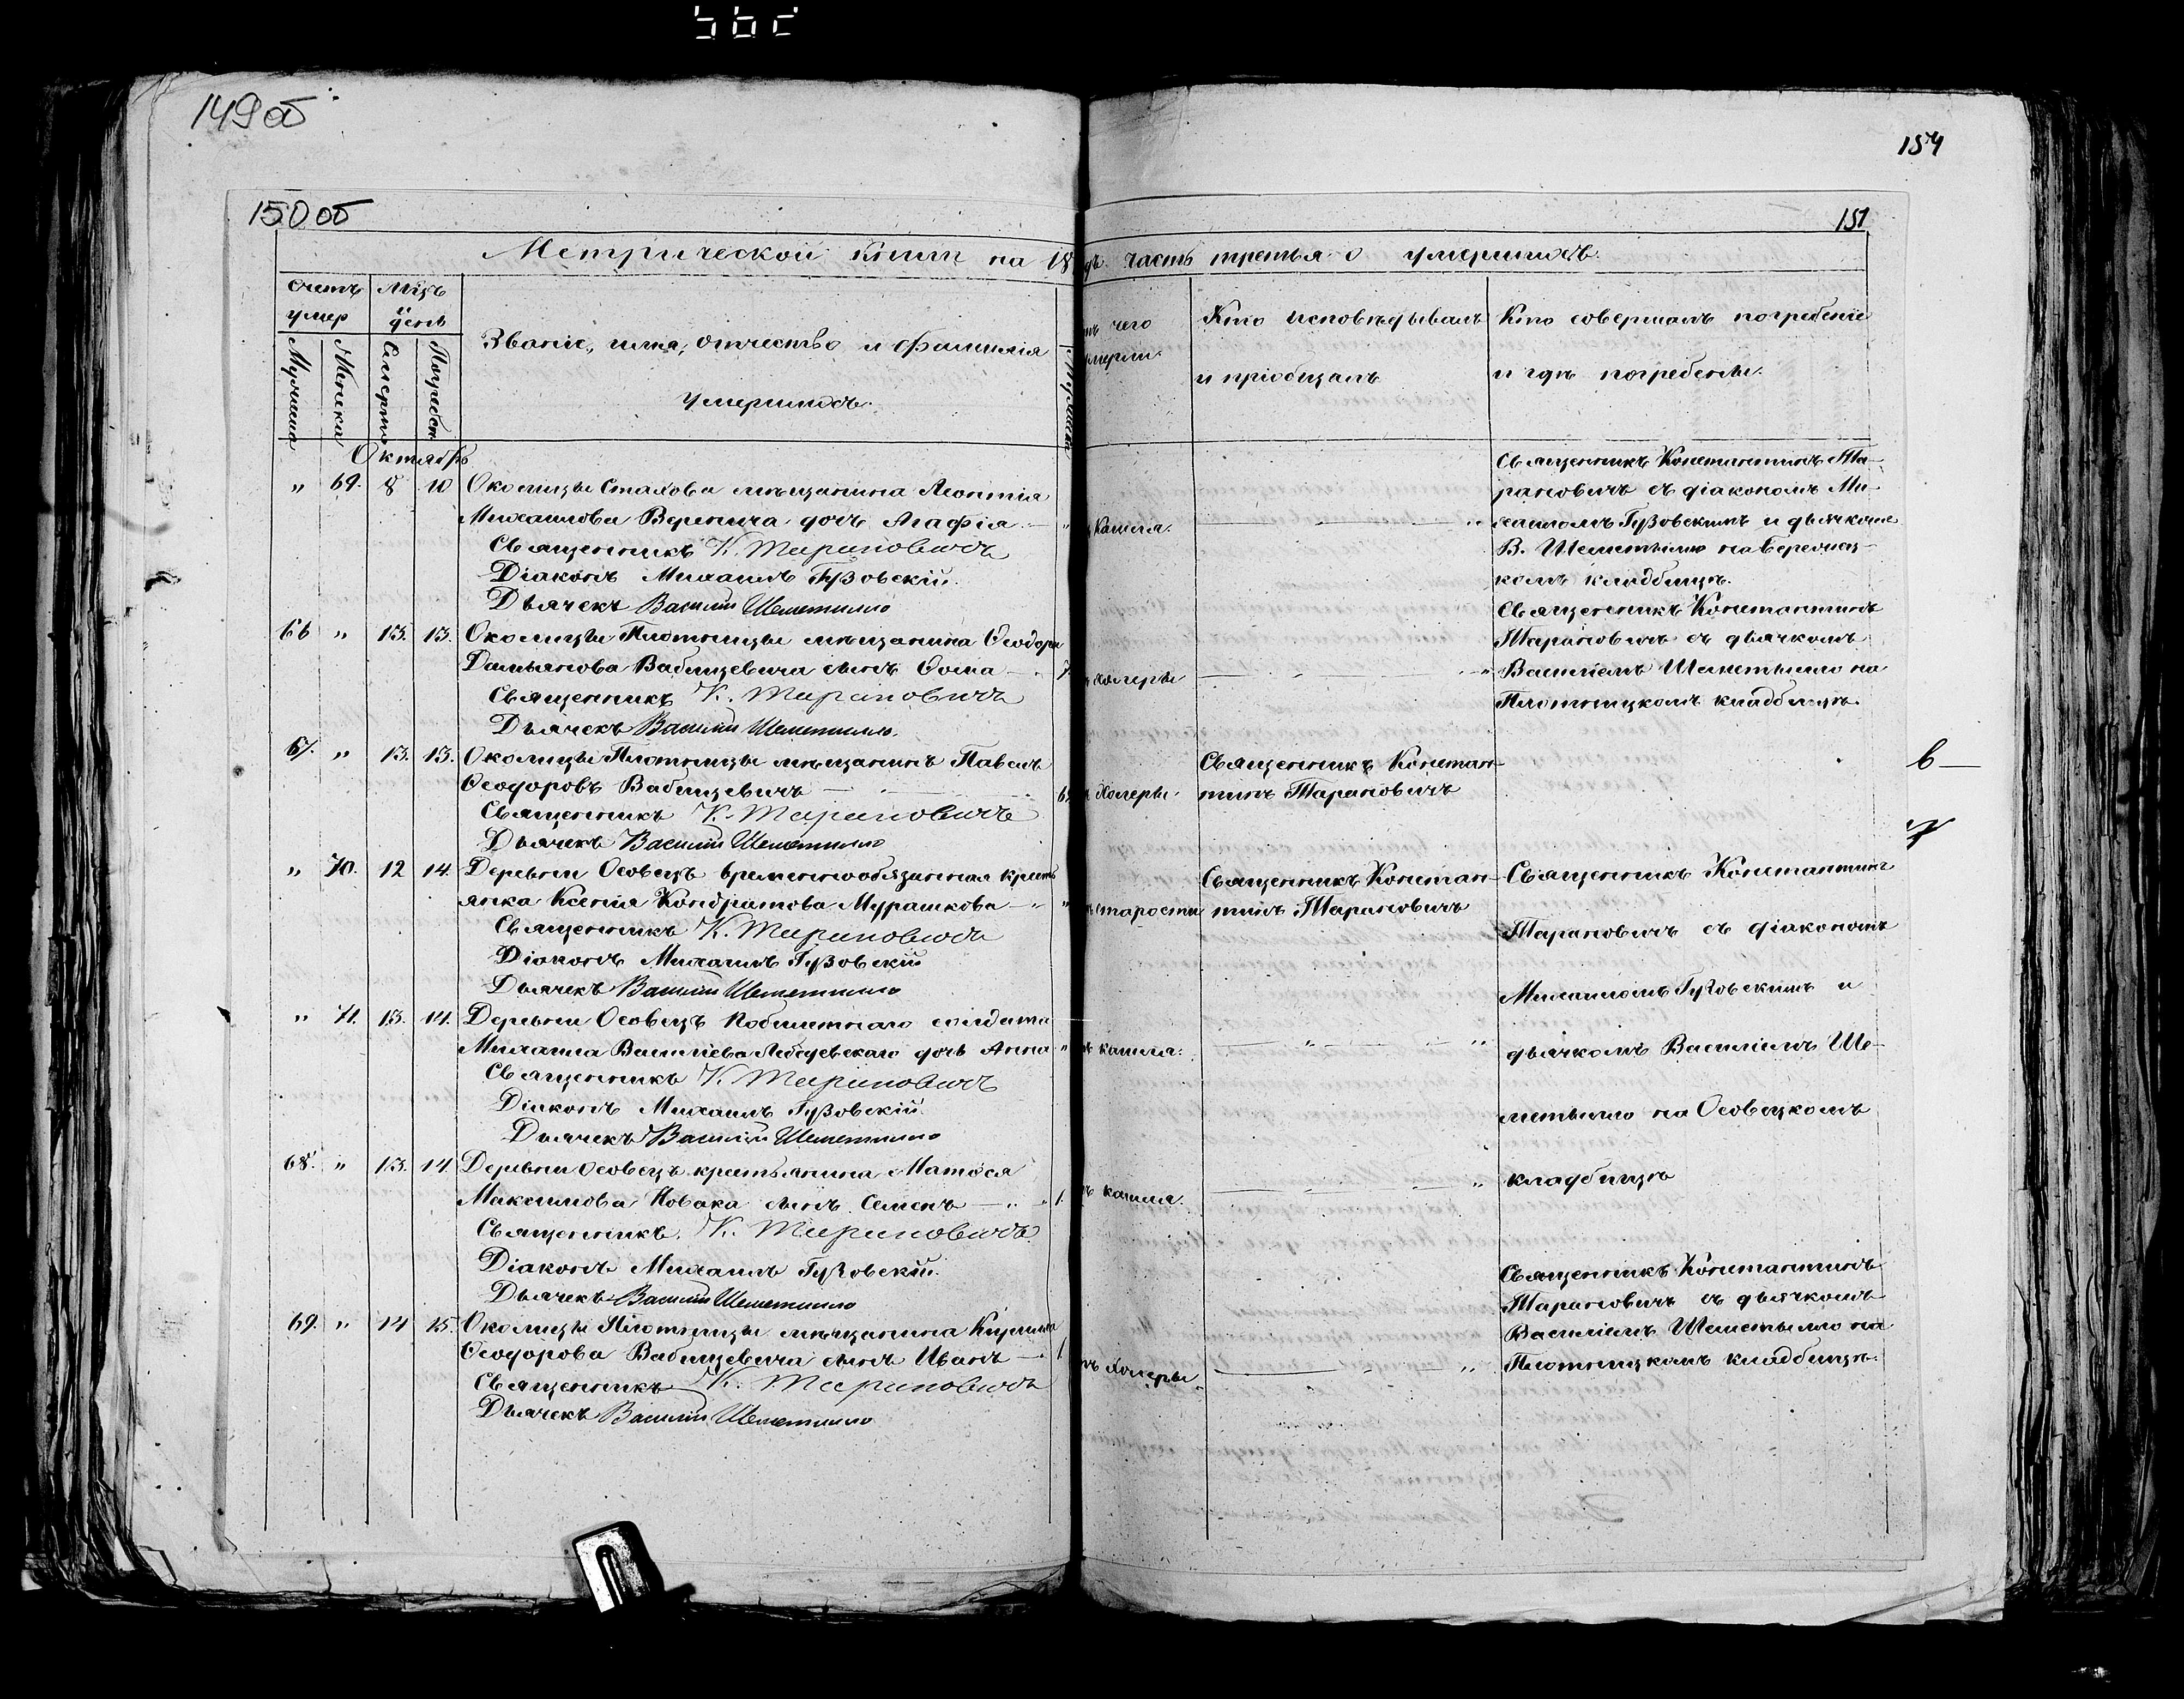 149 об
154
150 об
151
Метрической книги на 18
дъ часть третья о умершихъ.
Счетъ умер
Мцъ и день
Мужеска
Женска
Смерти
Погребен
Званіе, имя, отчество и фамилія
умершихъ.
чего
умерли.
Кто исповѣдывалъ
и пріобщалъ
Кто совершалъ погребеніе
и гдѣ погребены.
Октябрь
" 69. 8 10 Околицы Стахова мѣщанина Леонтія
Михаилова Веренича дочь Агафія
Священникъ К. Тарановичъ
Діаконъ Михаилъ Гузовскій.
Дьячекъ Василій Шеметилло
кашля.
Священникъ Константинъ Та-
рановичъ съ діакономъ Ми-
хаиломъ Гузовскимъ и дьячкомъ
В. Шеметилло на Бережец-
комъ кладбищѣ.
66 " 13. 13. Околицы Плотницы мѣщанина Ѳеодора
Дамьянова Вабищевича сынъ Ѳома
Священникъ К. Тарановичъ
Дьячекъ Василій Шеметилло.
холеры
Священникъ Константинъ
Тарановичъ съ дьячкомъ
Василіемъ Шеметилло на
Плотницкомъ кладбищѣ.
67. " 13. 13. Околицы Плотницы мѣщанинъ Павелъ
Ѳеодоровъ Вабищевичъ
Священникъ К. Тарановичъ
Дьячекъ Василій Шеметилло
Холеры.
Священникъ Констан-
тинъ Тарановичъ
" 70. 12 14. Деревни Осовецъ временнообязанная кресть
янка Ксенія Кондратова Мурашкова "
Священникъ К. Тарановичъ
Діаконъ Михаилъ Гузовскій
Дьячекъ Василій Шеметилло
старости
Священникъ Констан-
тинъ Тарановичъ
Священникъ Константинъ
Тарановичъ съ діакономъ
Михаиломъ Гузовскимъ и
дьячкомъ Василіемъ Ше-
метилло на Осовецкомъ
кладбищѣ
" 71. 13. 14. Деревни Осовецъ побилетнаго солдата
Михаила Василіева Лебедевскаго дочь Анна "
Священникъ К. Тарановичъ
Діаконъ Михаилъ Гузовскій.
Дьячекъ Василій Шеметилло
кашля.
68. " 13. 14. Деревни Осовецъ крестьянина Матѳея
Максимова Новака сынъ Семенъ 1.
Священникъ К. Тарановичъ
Діаконъ Михаилъ Гузовскій.
Дьячекъ Василій Шеметилло
кашля.
69. " 14 15. Околицы Плотницы мѣщанина Кирилла
Ѳеодорова Вабищевича сынъ Иванъ 1
Священникъ К. Тарановичъ
Дьячекъ Василій Шеметилло
Холеры
Священникъ Константинъ
Тарановичъ съ дьячкомъ
Василіемъ Шеметилло на
Плотницкомъ кладбищѣ.